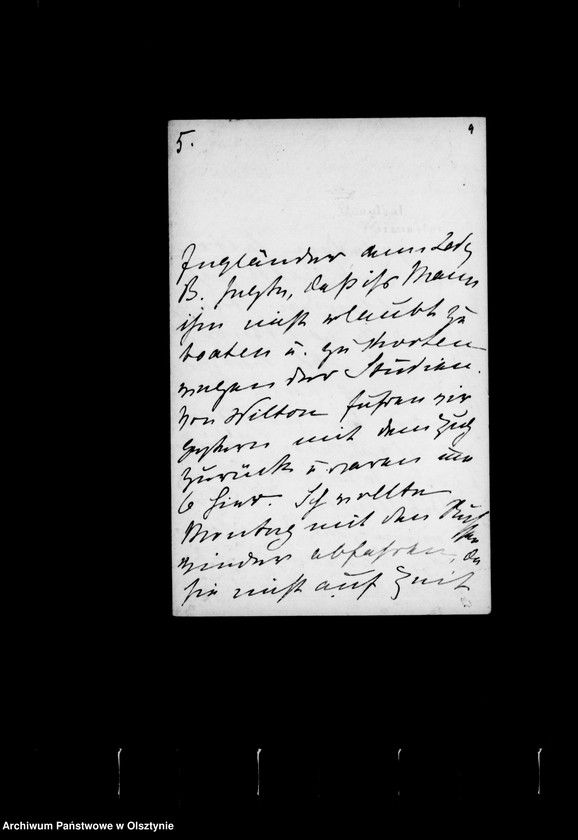 5.
9
Engländer, denn Lady
B. sagte, daß ihr Mann
ihm nicht erlaubt zu
boaten u. zu
wegen der Studien.
Von Wilton fuhren wir
gestern mit dem Zug
zurück u. waren um
6 hier. Ich wollte
Montag mit den
wieder abfahren, da
sie nicht auf Zeit
Archiwum Państwowe w Olsztynie